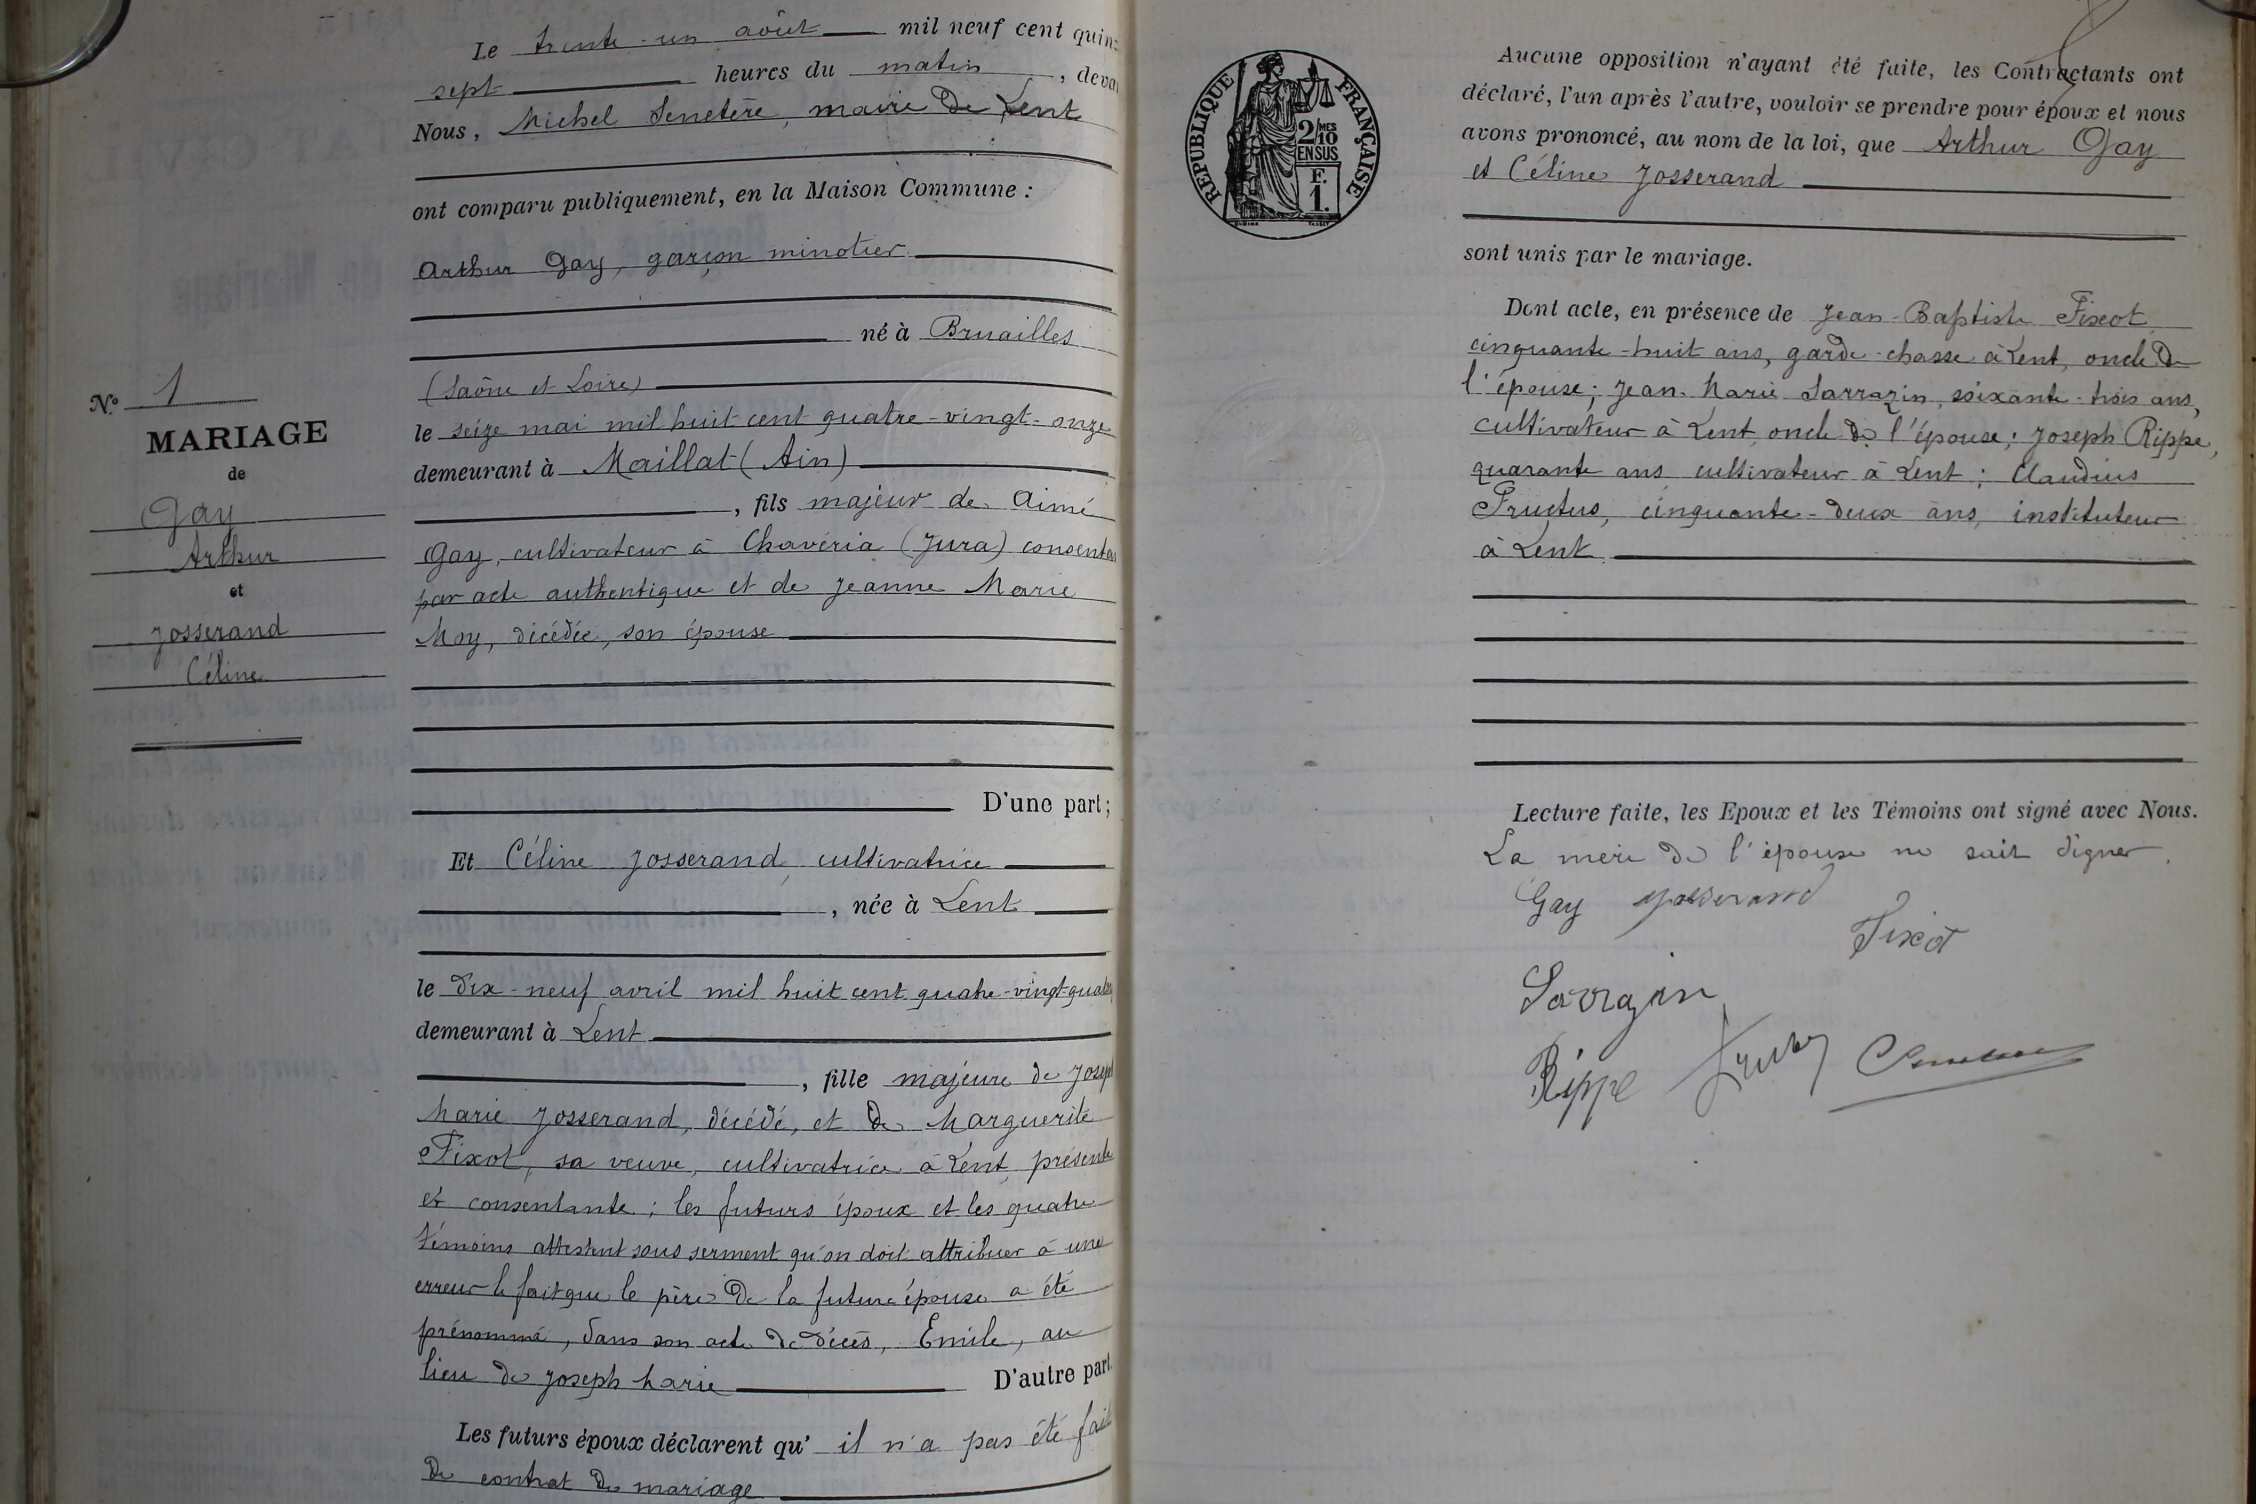 Le trente-un août mil neuf cent quin
sept heures du matin, deva
Nous, Michel Senetère, maire de Lent
ont comparu publiquement, en la Maison Commune :
Arthur Gay, garçon minotier
né à Bruailles
(Saône et Loire)
le seize mai mil huit cent quatre-vingt-onze
demeurant à Maillat (Ain)
, fils majeur de Aimé
Gay, cultivateur à Chavéria (Jura) consenta
par acte authentique et de Jeanne Marie
Moy, décédée, son épouse
D'une part ;
Et Céline Josserand, cultivatrice
, née à Lent
le dix-neuf avril mil huit cent quatre-vingt-quatre
demeurant à Lent
, fille majeure de Joseph
Marie Josserand, décédé, et de Marguerite
Fixot, sa veuve, cultivatrice à Lent, présente
et consentante ; les futurs époux et les quatre
témoins attestent sous serment qu'on doit attribuer à une
erreur le fait que le père de la future épouse a été
prénommé, dans son acte de décès, Emile, au
lieu de Joseph Marie D'autre part.
Les futurs époux déclarent qu' il n'a pas été fait
de contrat de mariage
N.º 1
MARIAGE
de
Gay
Arthur
et
Josserand
Céline
RÉPUBLIQUE FRANÇAISE
2/MES
10
EN SUS
F.
1.
Aucune opposition n'ayant été faite, les Contractants ont
déclaré, l'un après l'autre, vouloir se prendre pour époux et nous
avons prononcé, au nom de la loi, que Arthur Gay
et Céline Josserand
sont unis par le mariage.
Dont acte, en présence de Jean-Baptiste Fixot,
cinquante-huit ans, garde-chasse à Lent, oncle de
l'épouse ; Jean-Marie Sarrazin, soixante-trois ans,
cultivateur à Lent, oncle de l'épouse ; Joseph Rippe,
quarante ans, cultivateur à Lent ; Claudius
Fructus, cinquante-deux ans, instituteur
à Lent.
Lecture faite, les Epoux et les Témoins ont signé avec Nous.
La mère de l'épouse ne sait signer.
Gay Josserand
Fixot
Sarrazin
Rippe